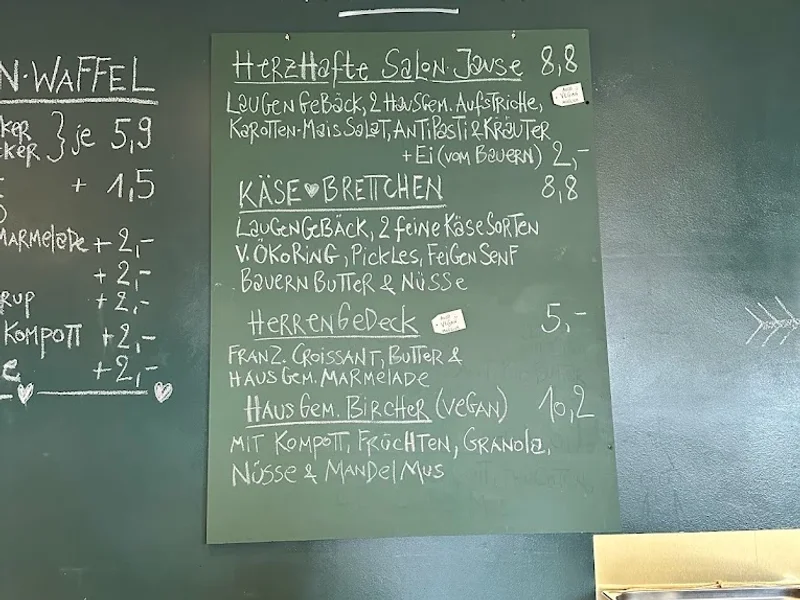 N·WAFFEL
KER } je 5,9
CKER
+ 1,5
MARMELADE + 2,-
+ 2,-
RUP + 2,-
KOMPOTT + 2,-
e + 2,-
HERZHafte SALON·JAUSE 8,8
AUCH VEGAN MÖGLICH
LAUGENGEBÄCK, 2 HAUSGEM. AUFSTRICHE,
KAROTTEN-MAIS SALAT, ANTIPASTI & KRÄUTER
+ Ei (VOM BAUERN) 2,-
KÄSE♥BRETTCHEN 8,8
LAUGENGEBÄCK, 2 feine KÄSESORTEN
V. ÖKORING, PICKLES, FEIGENSENF
BAUERNBUTTER & NÜSSE
HERRENGEDECK 5,-
AUCH VEGAN MÖGLICH
FRANZ. CROISSANT, BUTTER &
HAUSGEM. MARMELADE
HAUSGEM. BIRCHER (VEGAN) 10,2
MIT KOMPOTT, FRÜCHTEN, GRANOLA,
NÜSSE & MANDELMUS